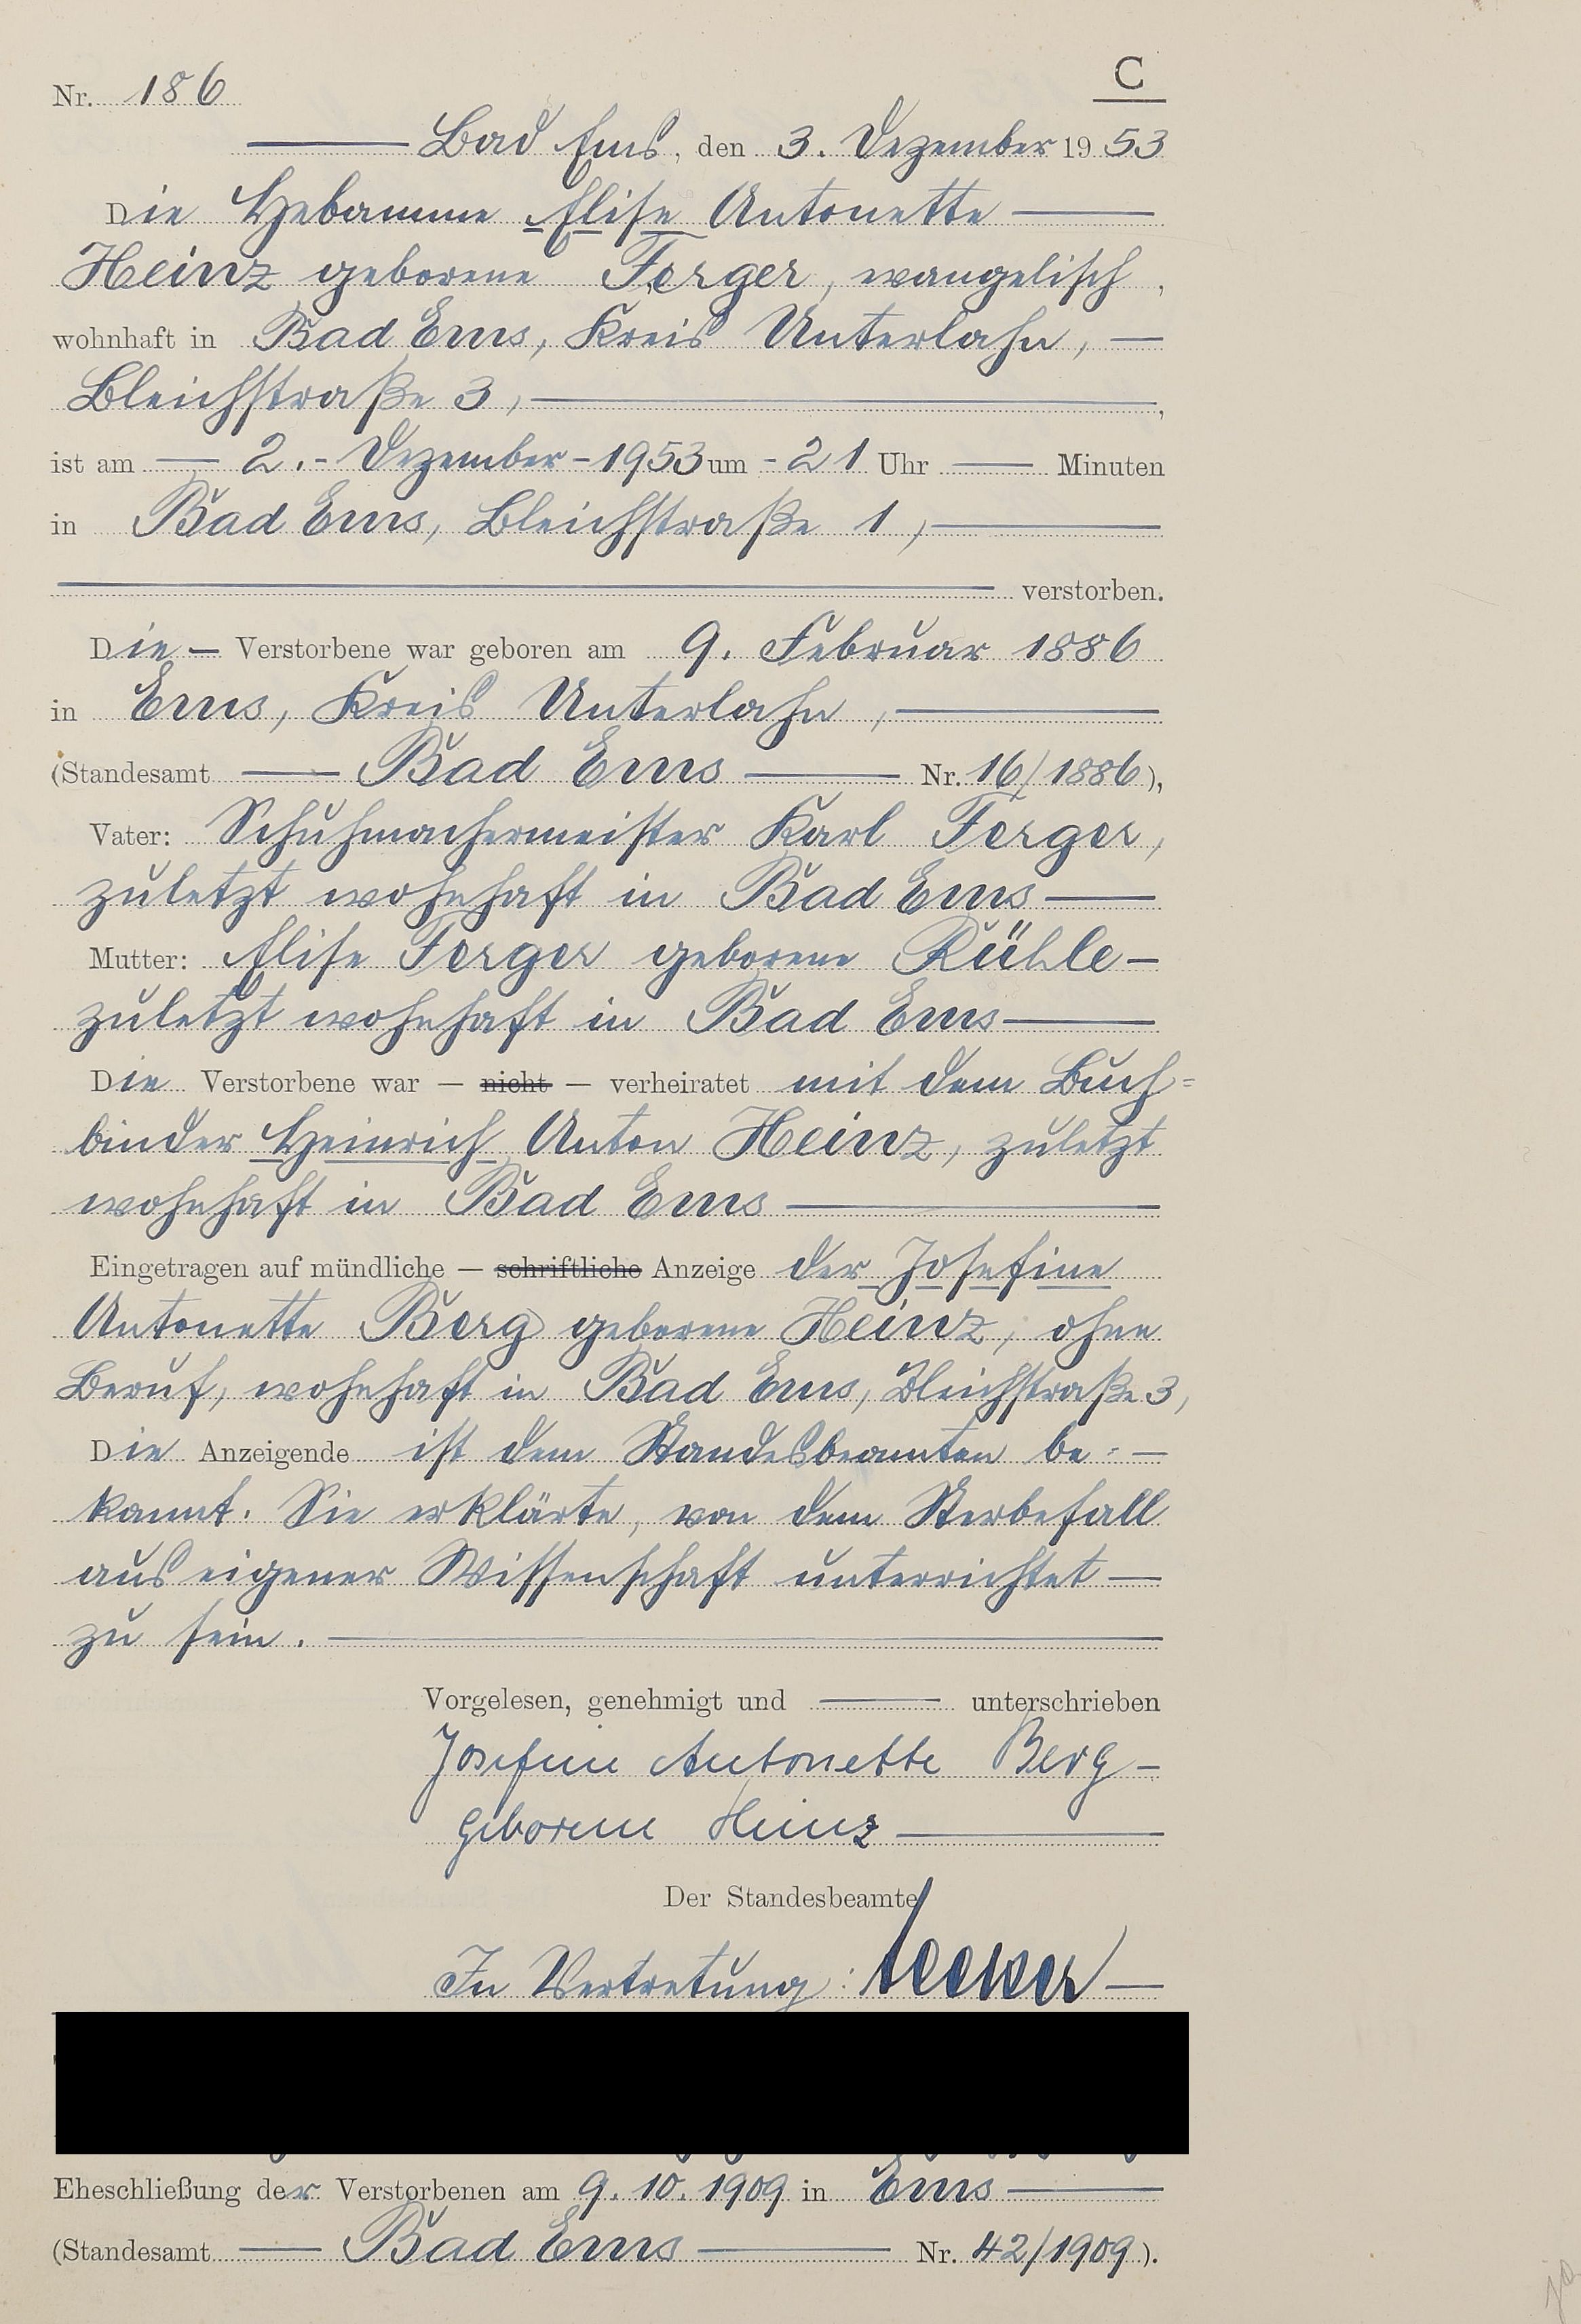 Nr. 186
C
Bad Ems, den 3. Dezember 1953
Die Hebamme Elise Antonette
Heinz geborene Ferger, evangelisch,
wohnhaft in Bad Ems, Kreis Unterlahn, —
Bleichstraße 3, —,
ist am — 2. - Dezember - 1953 um - 21 Uhr — Minuten
in Bad Ems, Bleichstraße 1, —
— verstorben.
Die — Verstorbene war geboren am 9. Februar 1886
in Ems, Kreis Unterlahn, —
(Standesamt — Bad Ems — Nr. 16/1886),
Vater: Schuhmachermeister Karl Ferger,
zuletzt wohnhaft in Bad Ems —
Mutter: Elise Ferger geborene Rühle —
zuletzt wohnhaft in Bad Ems —
Die Verstorbene war — nicht — verheiratet mit dem Buch=
binder Heinrich Anton Heinz, zuletzt
wohnhaft in Bad Ems —
Eingetragen auf mündliche — schriftliche Anzeige der Josefine
Antonette Berg geborene Heinz, ohne
Beruf, wohnhaft in Bad Ems, Bleichstraße 3,
Die Anzeigende ist dem Standesbeamten be= —
kannt. Sie erklärte, von dem Sterbefall
aus eigener Wissenschaft unterrichtet —
zu sein. —
Vorgelesen, genehmigt und — unterschrieben
Josefine Antonette Berg —
geborene Heinz —
Der Standesbeamte
In Vertretung: —
Eheschließung der Verstorbenen am 9. 10. 1909 in Ems —
(Standesamt — Bad Ems — Nr. 42/1909).